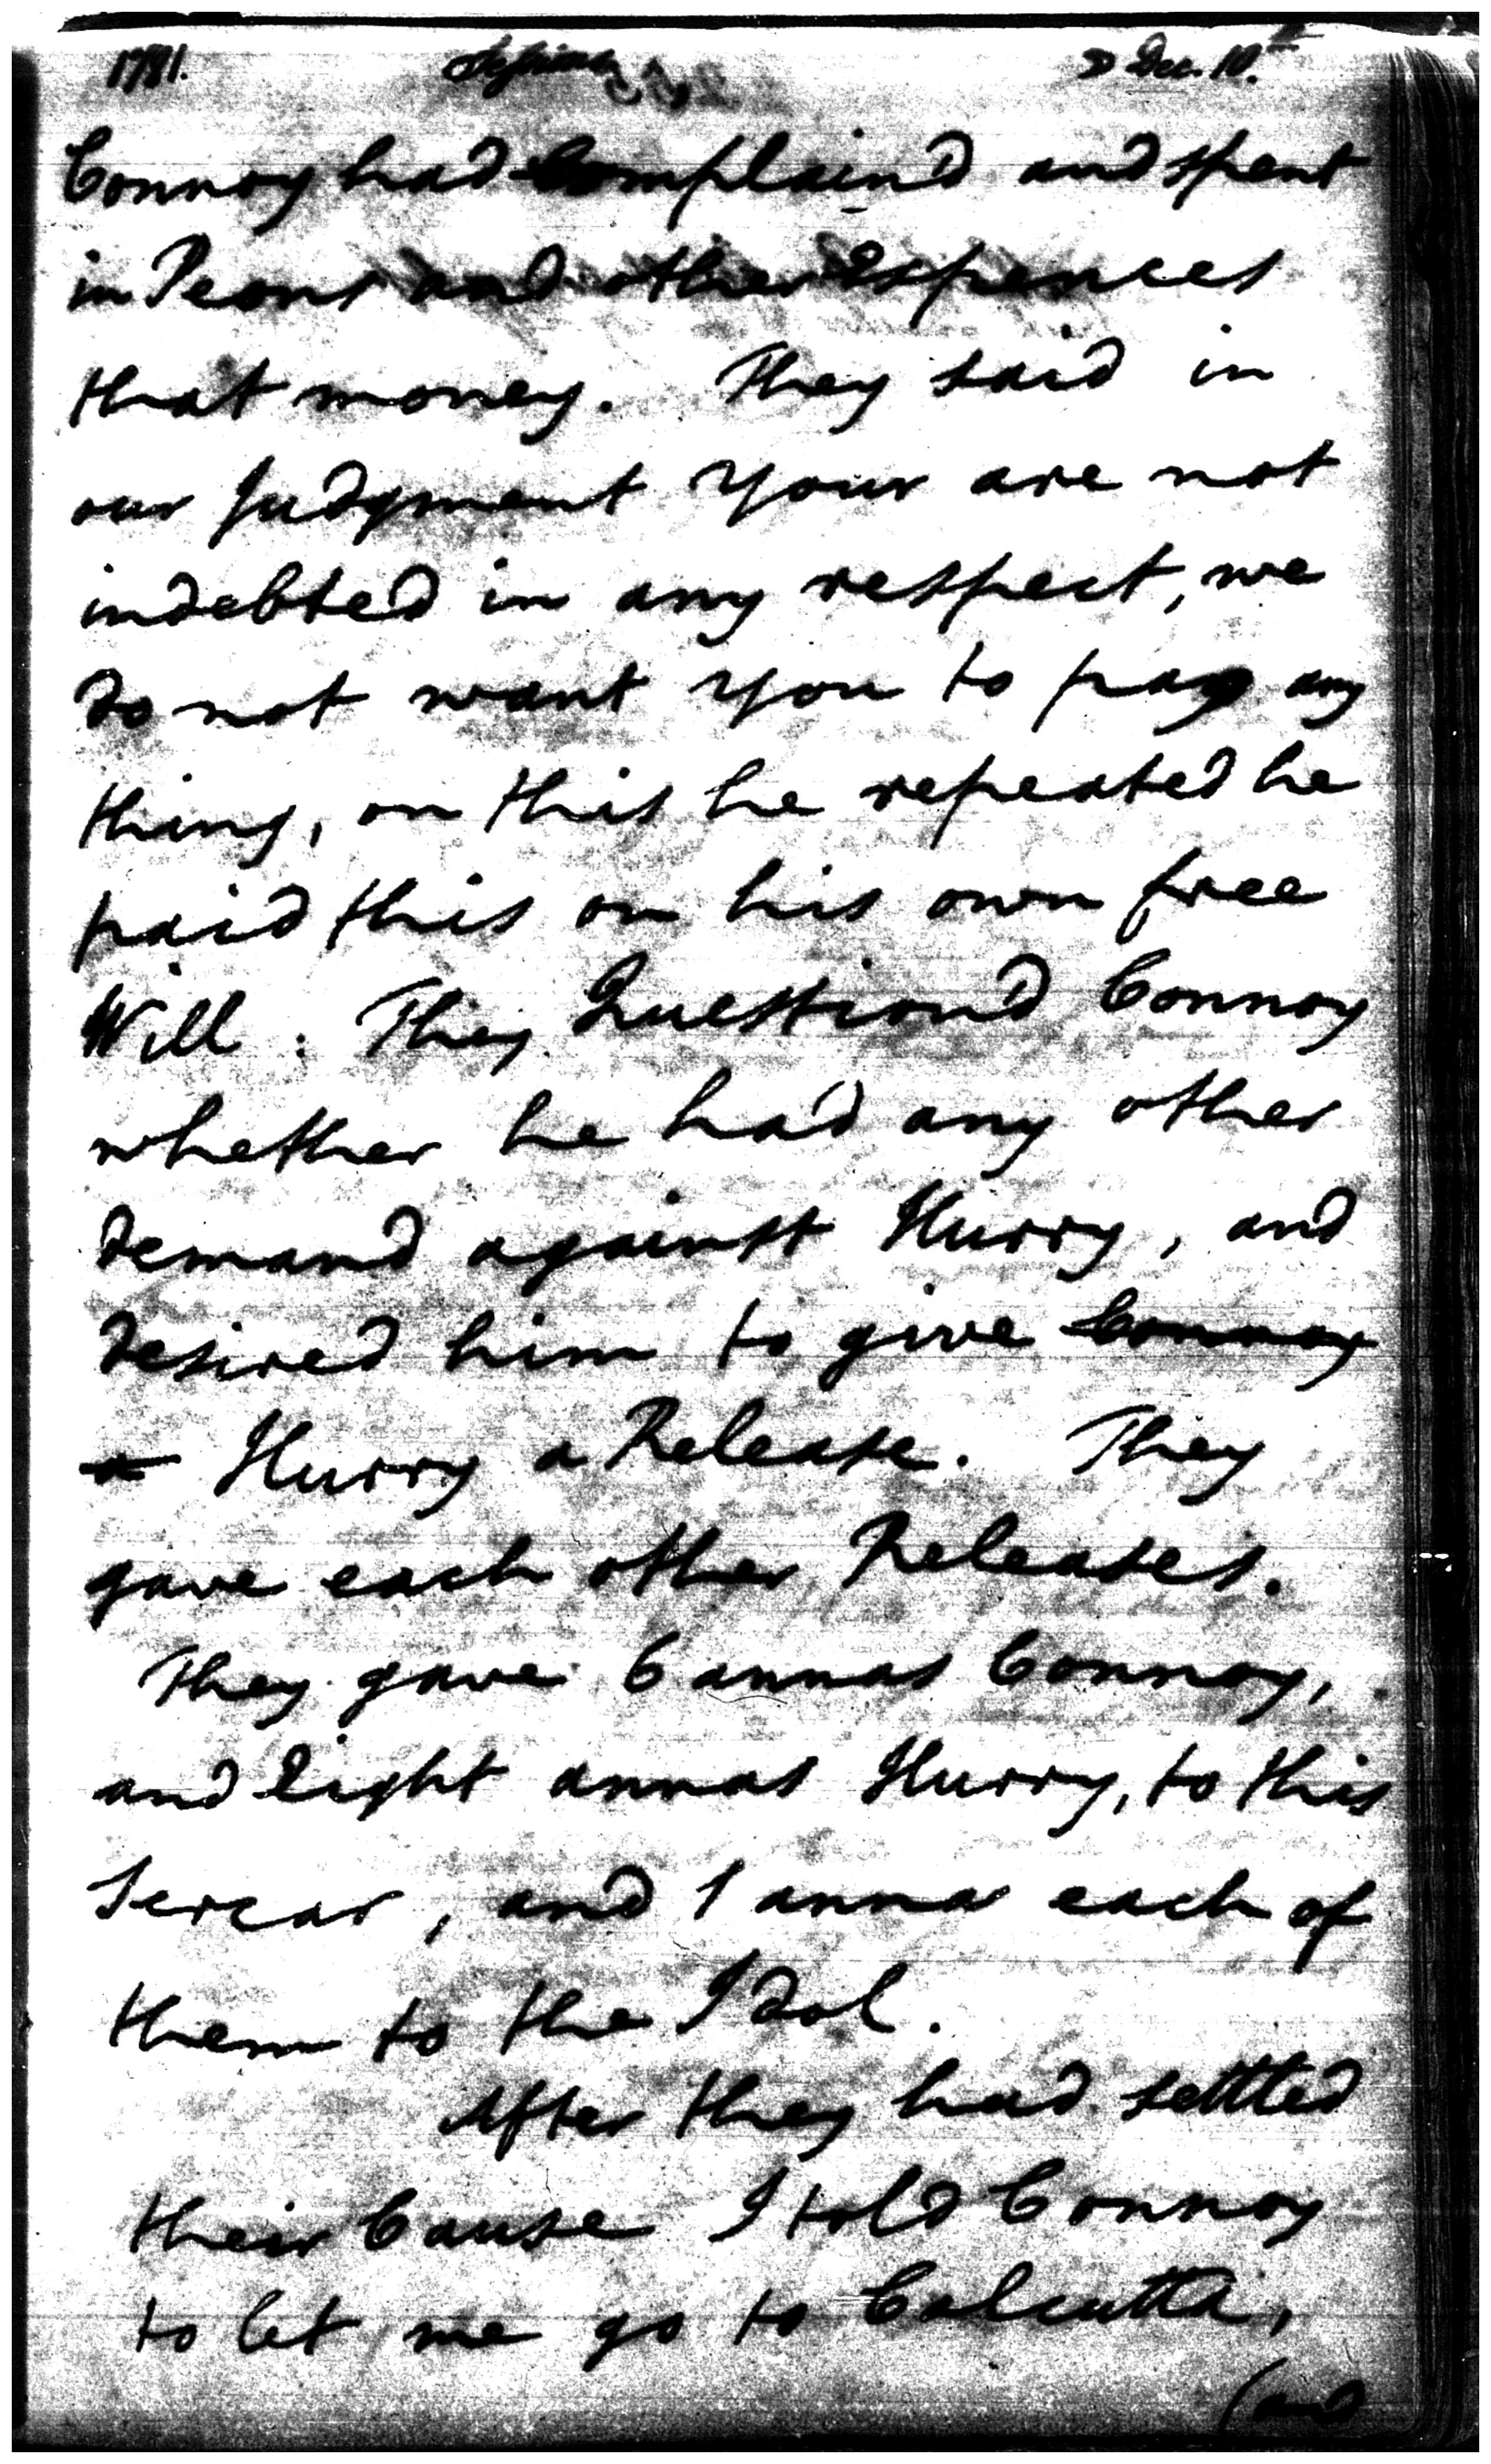 1781. Dec. 10.th
Connoy had Complain'd and spent
in Peons and other Expences
that money. They said in
our Judgment Your are not
indebted in any respect, we
do not want You to pay any
thing, on this he repeated he
paid this on his own free
Will. They Question'd Connoy
whether he had any other
demand against Hurry, and
desired him to give Connoy
a Hurry a Release. They
gave each other Releases.
They gave 6 annas Connoy,
and Eight annas Hurry, to this
Sercar, and 1 anna each of
them to the Idol.
After they had settled
their Cause I told Connoy
to let me go to Calcutta,
(and